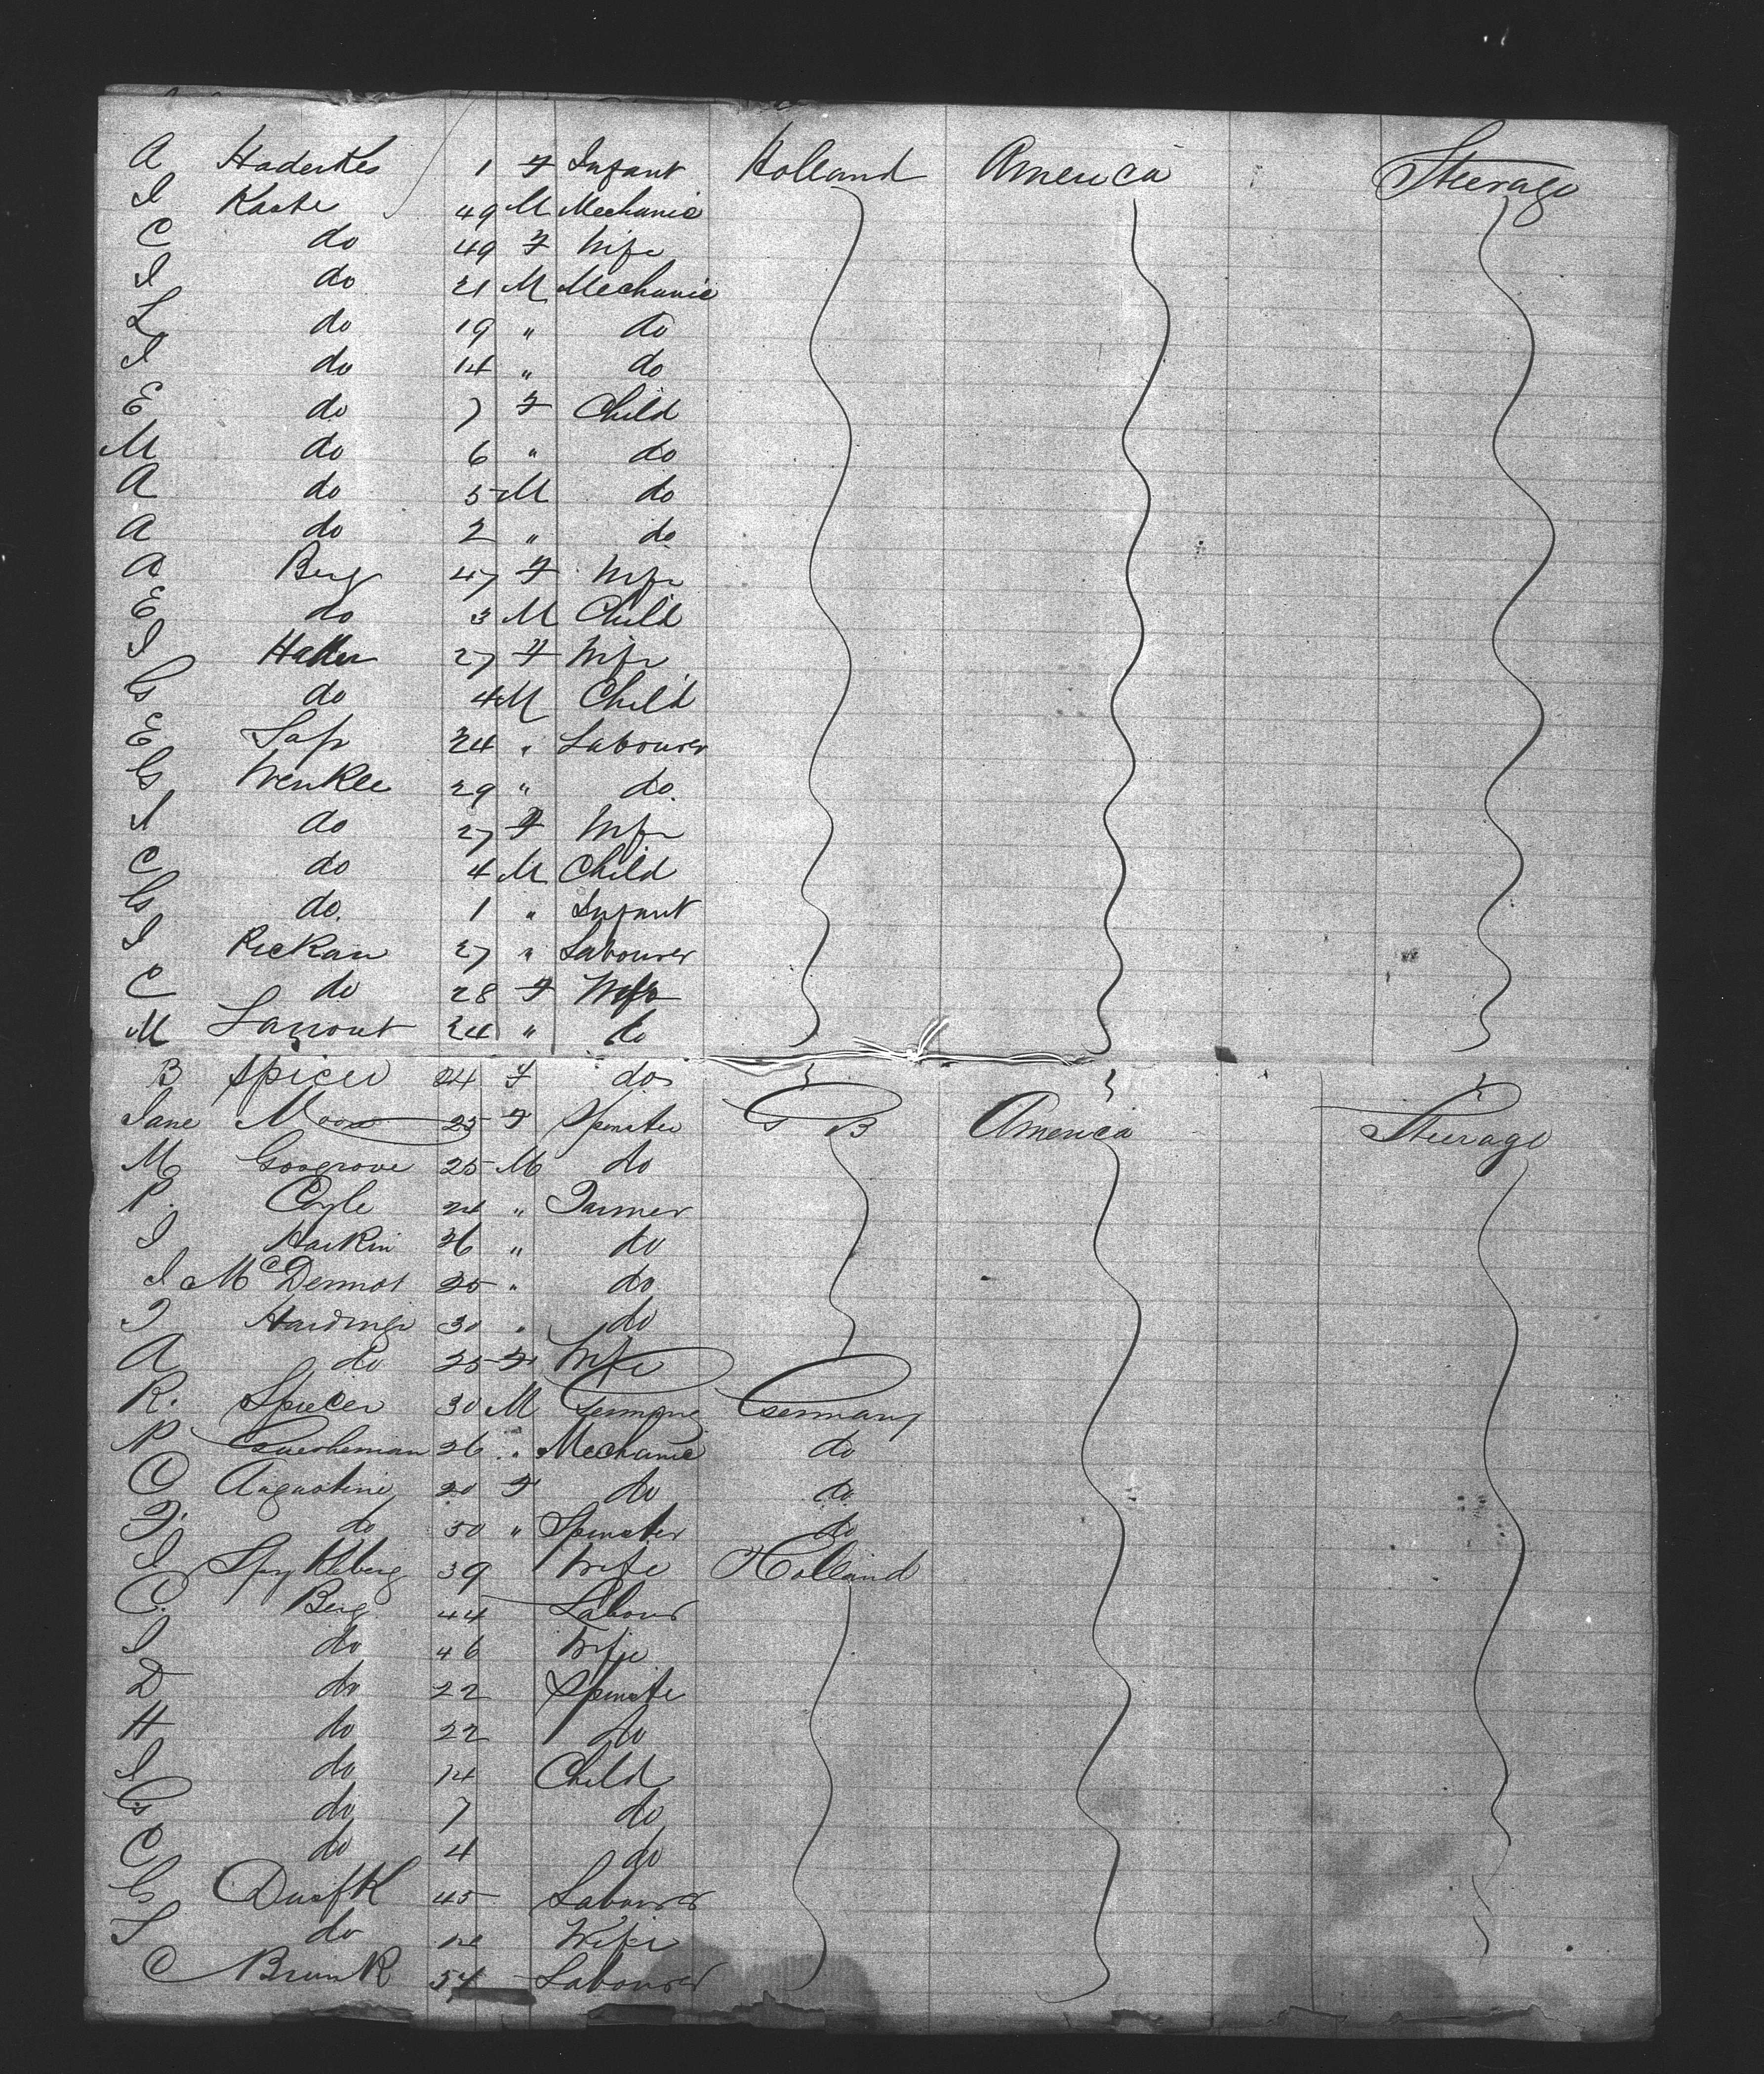 A Haderkes 1 F Infant Holland America Steerage
I Kaste 49 M Mechanic
C do 49 F Wife
I do 21 M Mechanic
L do 19 " do
I do 14 " do
E do 7 F Child
M do 6 " do
A do 5 M do
A do 2 " do
A Berg 47 F Wife
E do 3 M Child
I 27 F Wife
G do 4 M Child
E Sap 24 " Labourer
G Wenkle 29 " do
I do 27 F Wife
C do 4 M Child
G do 1 " Infant
I Rickan 27 " Labourer
C do 28 F Wife
M 24 " do
B Spicer 24 F do
Jane Moon 25 F Spinster G B America Steerage
M Gosgrove 25 M do
P. Coyle 24 " Farmer
I Harkin 36 " do
I McDermot 25 " do
T Hardinge 30 " do
A do 25 F Wife
R. Spicer 30 M Germany
P 26 " Mechanic do
C Augustine 20 F do do
F. do 50 " Spinster do
I Spykleberg 39 Wife Holland
C. Berg 44 Labour
I do 46 Wife
D do 22 Spinste
H do 22 do
I do 14 Child
G do 7 do
C do 4 do
G 45 Labourer
S do Wife
C Brunk 54 Labourer